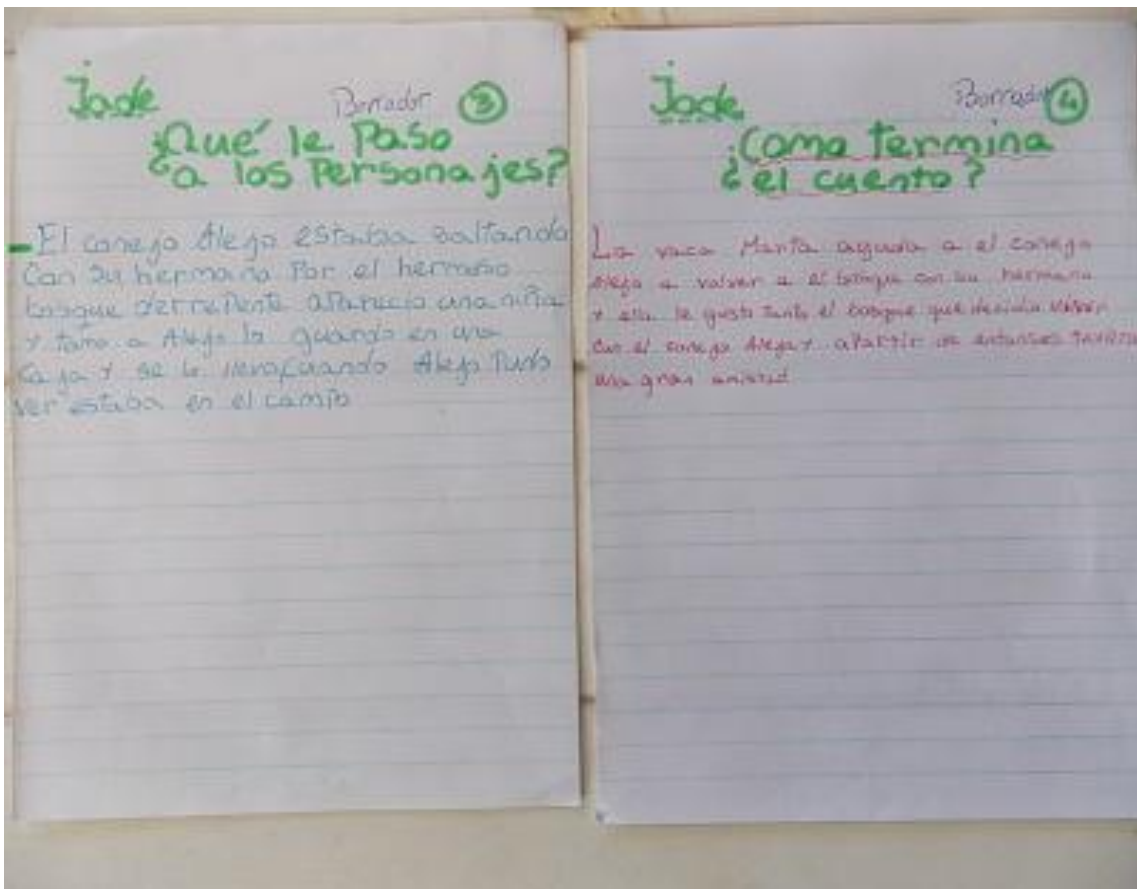 Jade
Borrador 3
¿Qué le Paso
a los Personajes?
El conejo Alejo estaba saltando
Con su hermana Por el hermoso
bosque derrepente aparecio una niña
y tomo a Alejo lo guardo en una
caja y se lo llevo, cuando Alejo Pudo
ver estaba en el campo
Jade
Borrador 4
¿Como termina
el cuento?
La vaca Marta ayuda a el conejo
Alejo a volver a el bosque con su hermana
y ella le gusto tanto el bosque que decidio
con el conejo Alejo y apartir de entonses
una gran amistad